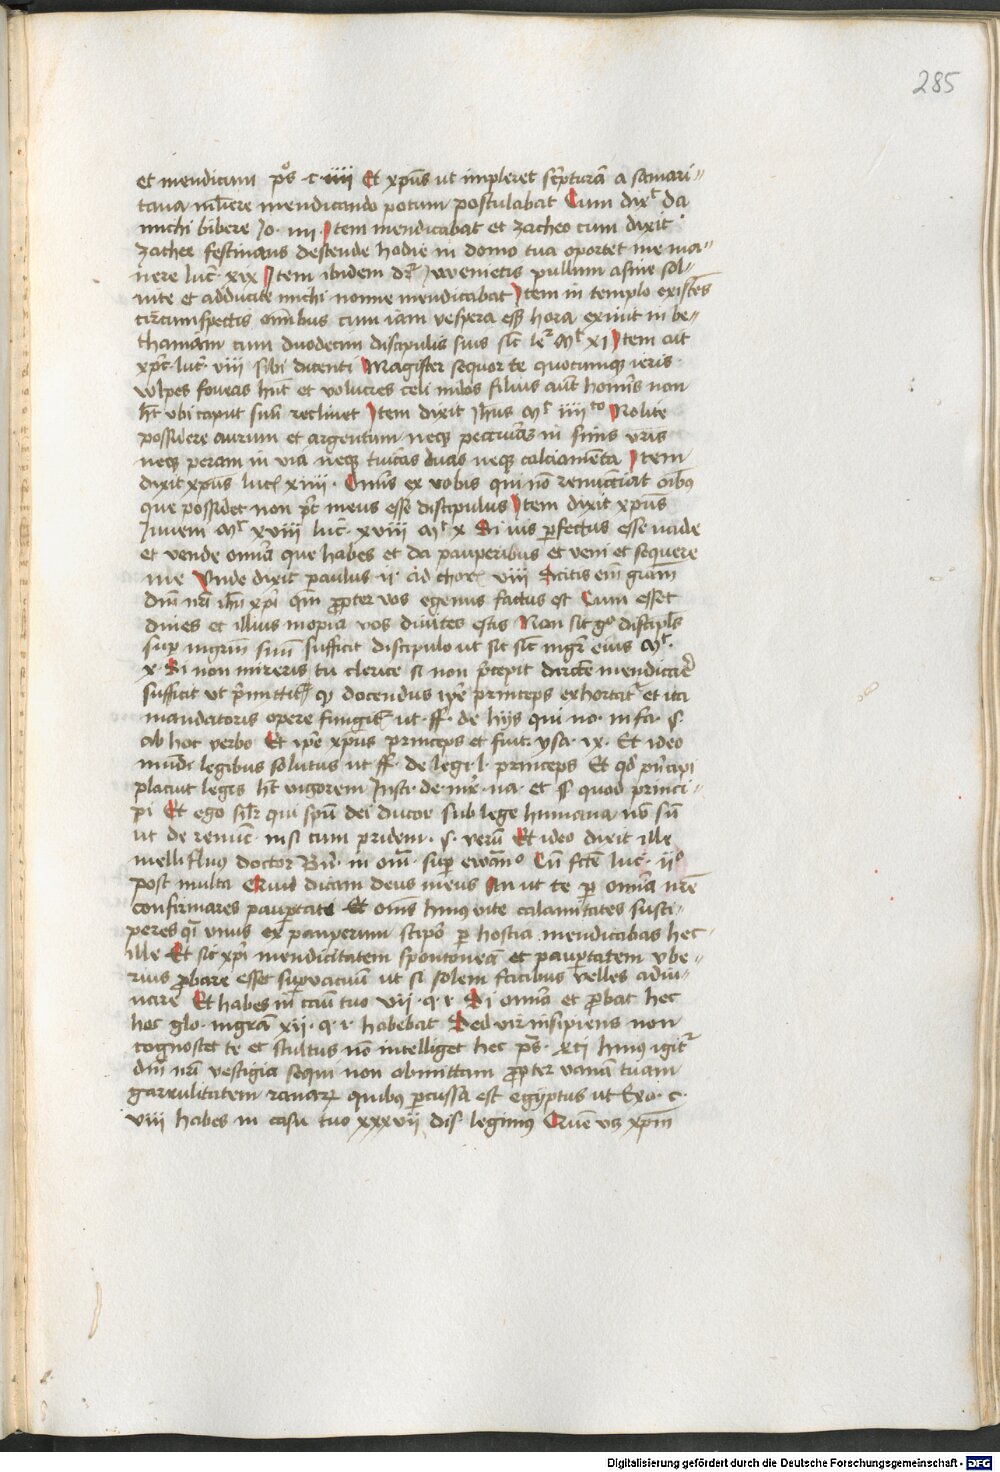 285
et mendicum ps c iiii Et xpūs ut impleret scripturā a samari
tana muliere mendicando potum postulabat Cum dixt da
michi bibere Jo. iiii. Item mendicabat et zacheo cum dixit
zachee festinans descende hodie in domo tua oportet me ma
nere luc xix Item ibidem dr Invenietis pullum asine sol
uite et adducite michi nonne mendicabat Item in templo existēs
circumspectis omnibus cum iam vespera esset hora exiuit in be
thaniam cum duodecim discipulis suis sic lr Mr xi Item ait
xpc luc viii sibi dicenti Magister sequor te quocumqz ieris
vulpes foveas hnt et volucres celi nidos filius aut hominis non
ht vbi caput suū reclinet Item dixit ihus Mr iiii to Nolite
possidere aurum et argentum neqz pecunias in sinis vris
neqz peram in via neqz tunicas duas neqz calciamēta Item
dixit xpus luc xiiii. Omnis ex vobis qui nō renunciat oibus
que possidet non pt meus esse discipulus Item dixit xpūs
Iuueni Mr xviii luc xviii Mr x Si vis perfectus esse uade
et vende omnia que habes et da pauperibus et veni et sequere
me Vnde dixit paulus ii ad chor viii Scitis eī gram
dni nri ihu xpi qm propter vos egenus factus est Cum esset
diues et illius inopia vos diuites estis Non sit go discipls
sup mgrm suū sufficit discipulo ut sit sic mgr eius Mr
x Si non mireris tu clerice si non precepit directe mendicare
sufficit ut permittit qz docendus ipe princeps exhortat et ita
mandatoris opere fungit ut ff de hijs qui no infa s
ab hoc verbo Et ipe xpus princeps et fuit ysa ix. Et ideo
mundi legibus solutus ut ff de legi l princeps Et qd principi
placuit legis ht vigorem Insti de iure na et s quod princi
pi Et ego silr qui spu dei ducor sub lege humana nō sū
ut de renuc nisi cum pridem s verū Et ideo dixit ille
mellifluus doctor Br in om sup ewāo Cū fcte luc ii o
post multa Quid dicam deus meus An ut te per omnia nre
confirmares paupertati Et omnes huius vite calamitates susci
peres qi vnus ex pauperum stipo per hostia mendicabas hec
ille Et sic xpi mendicitatem spontoneā et paupertatem vbe
rius probare esset supervacuū ut si solem facibus velles adiu
uare Et habes in cau tuo vii q i Si omia et probat hec
hoc glo mgram xii q i habebat Sed vir insipiens non
cognoscet te et stultus nō intelliget hec ps xci huius igitr
dni nri vestigia sequi non obmittam propter vanā tuam
garrulitatem ranarz quibus percussa est egiptus ut Exo c
viii habes in casu tuo xxxvii dis legimus Quē vs xpm
Digitalisierung gefördert durch die Deutsche Forschungsgemeinschaft · DFG